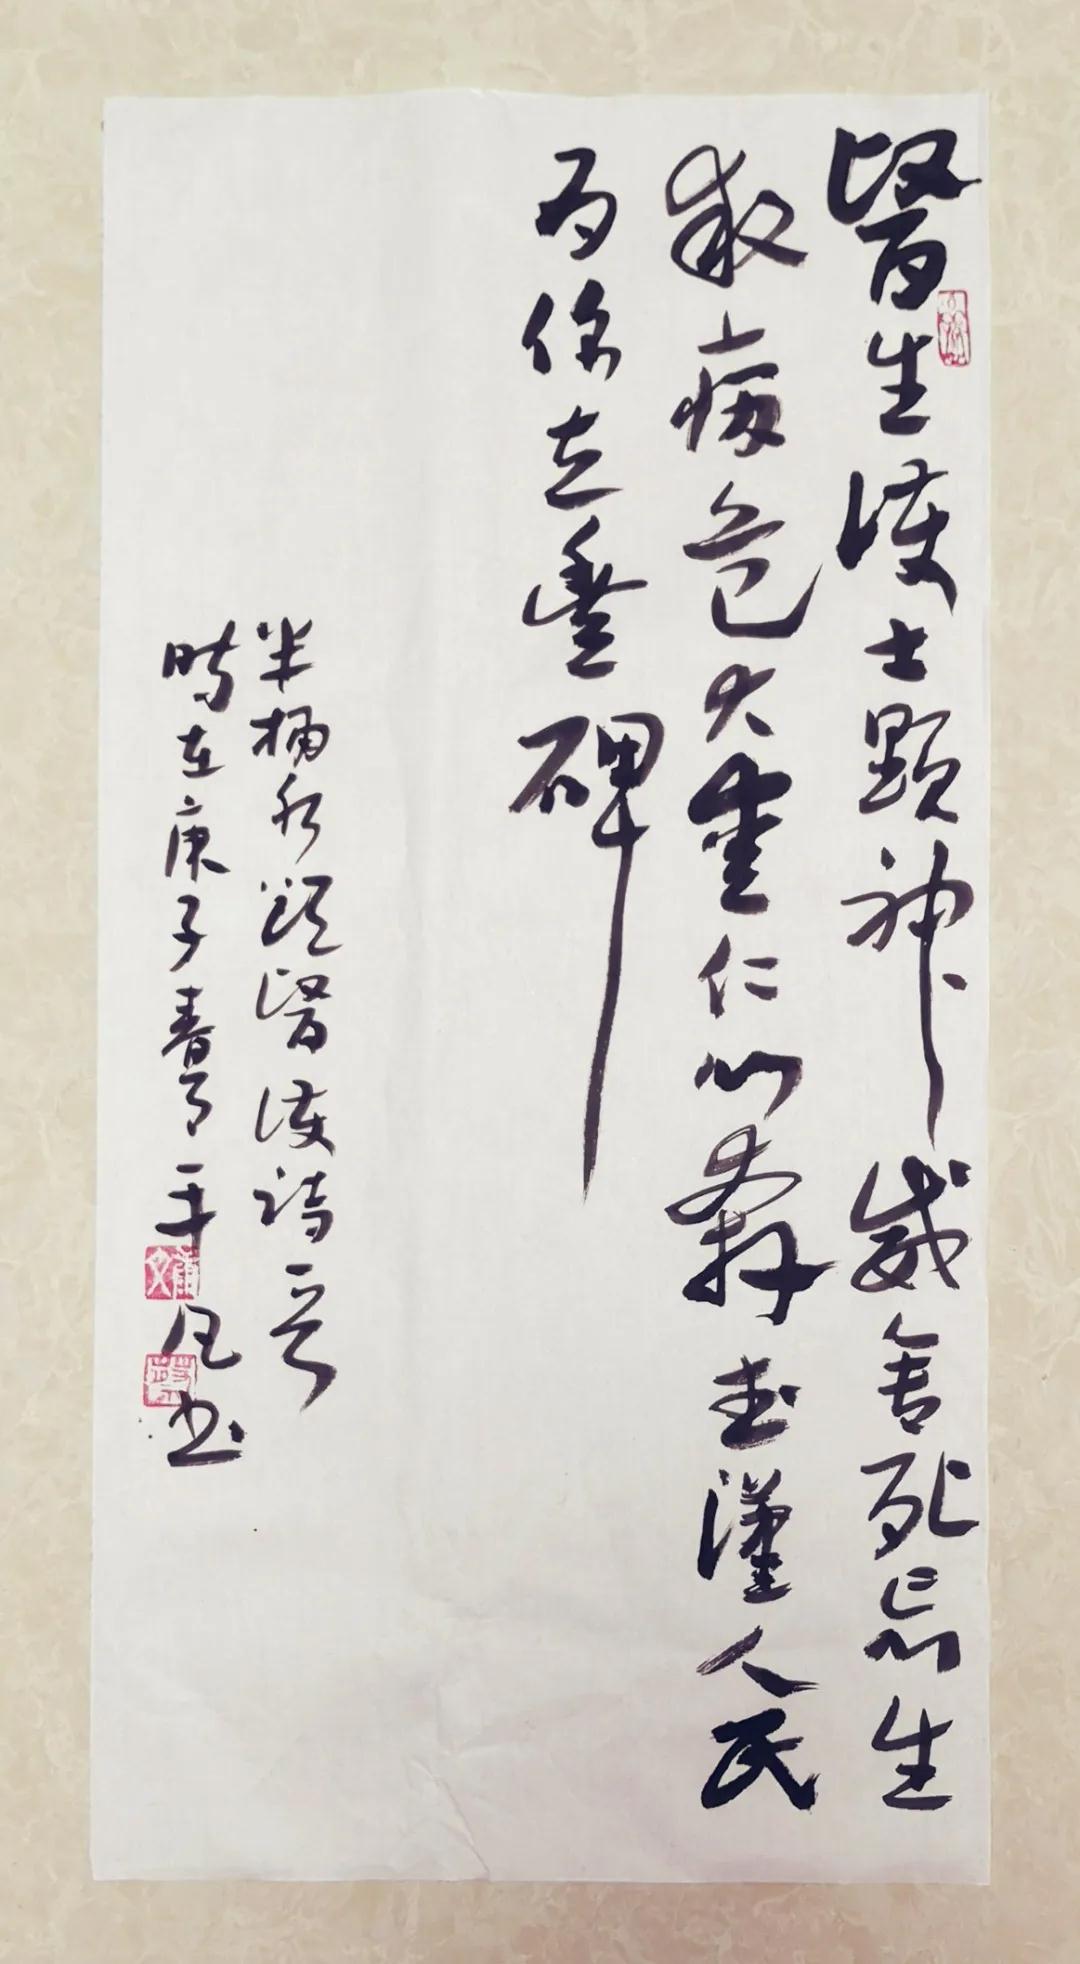 醫生護士顯神威舍死忘生
救病危大愛仁心舞武漢人民
为你立豐碑
半桶水頌醫護詩一首
時在庚子春月一平凡书